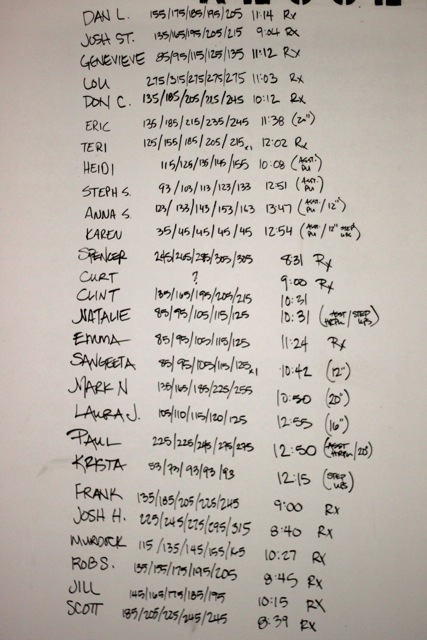 DAN L. 155/175/185/195/205 11:14 Rx
JOSH ST. 135/165/195/205/215 9:04 Rx
GENEVIEVE 85/95/115/125/135 11:12 Rx
LOU 275/315/275/275/275 11:03 Rx
DON C. 135/185/205/225/245 10:12 Rx
ERIC 135/185/215/235/245 11:38 (20")
TERI 125/155/185/205/215x1 12:02 Rx
HEIDI 115/125/135/145/155 10:08 (ASST. PU)
STEPH S. 93/103/113/123/133 12:51 (ASST. PU)
ANNA S. 123/133/143/153/163 13:47 (ASST. PU/12")
KAREN 35/45/45/45/45 12:54 (ASST. PU/12" STEP UPS)
SPENCER 245/265/295/305/305 8:31 Rx
CURT ? 9:00 Rx
CLINT 185/165/195/205/215 10:31
NATALIE 85/95/105/115/125 10:31 (ASST /STEP UPS)
EMMA 85/95/105/115/125 11:24 Rx
SANGEETA 85/95/105/115/125x1 10:42 (12")
MARK N 135/165/185/225/255 10:50 (20")
LAURA J. 105/110/115/120/125 12:55 (16")
PAUL 225/225/245/275/275 12:50 (ASST /20)
KRISTA 53/73/93/93/93 12:15 (STEP UPS)
FRANK 135/185/205/225/245 9:00 Rx
JOSH H. 225/245/275/295/315 8:40 Rx
MURDOCK 115/135/145/155/165 10:27 Rx
ROB S. 135/155/175/195/205 8:45 Rx
JILL 145/165/175/185/195 10:15 Rx
SCOTT 185/205/225/245/245 8:39 Rx